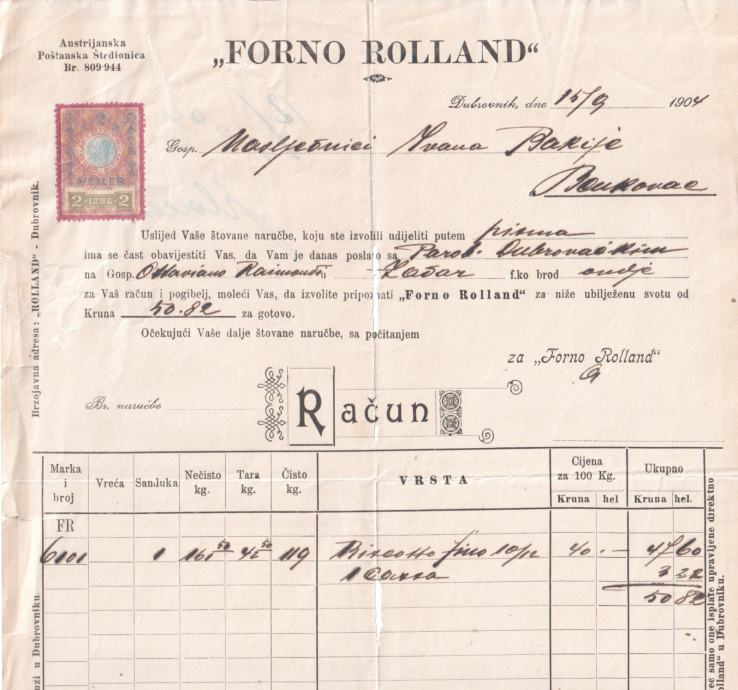 Austrijanska
Poštanska Štedionica
Br. 809·944
„FORNO ROLLAND“
Dubrovnik, dne 15/9 1904
HELLER
2 ·1898· 2
Gosp. Nasljednici Ivana Bakije
Benkovac
Brzojavna adresa: „ROLLAND“ - Dubrovnik.
Uslijed Vaše štovane naručbe, koju ste izvolili udijeliti putem pisma
ima se čast obavijestiti Vas, da Vam je danas poslao sa Parob. Dubrovačkim
na Gosp. Ottaviano Raimondi u Zadar f.ko brod ondje
za Vaš račun i pogibelj, moleći Vas, da izvolite pripoznati „Forno Rolland“ za niže ubilježenu svotu od
Kruna 50.82 za gotovo.
Očekujući Vaše dalje štovane naručbe, sa počitanjem
za „Forno Rolland“
Br. naručbe
Račun
Marka i broj Vreća Sanduka Nečisto kg. Tara kg. Čisto kg. VRSTA Cijena za 100 Kg. Ukupno
Kruna hel Kruna hel.
FR
6101 1 161 50 42 50 119 Biscotto fino 40 . — 47 60
1 Cassa 3 22
50 82
uzi u Dubrovniku.
ec samo one isplate upravljene direktno
olland“ u Dubrovniku.